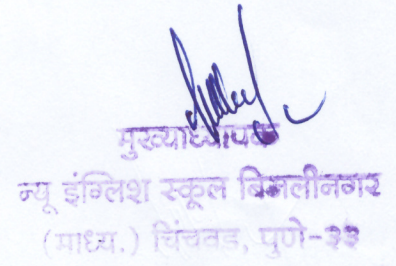 मुख्याध्यापक
न्यू इंग्लिश स्कूल बिजलीनगर
(माध्य.) चिंचवड, पुणे-३३